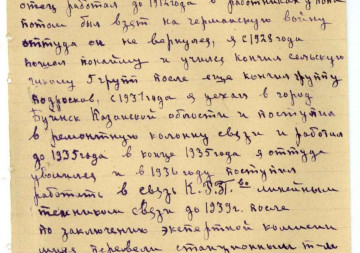 отец работал до 1914 года в работниках у попа
потом был взят на германскую войну
оттуда он не вернулся, я с 1928 года
пошел по найму и учился кончил сельскую
школу 5 групп после еще кончил группу
подросков, с 1931 года я уехал в город
Буинск Казанской области и поступил
в ремонтную колонну связи и работал
до 1935 года в конце 1935 года я оттуда
уволился и в 1936 году поступил
работать в связь линейным
техником связи до 1939 г. после
по заключению экспертной комиссии
меня перевели станционным т-м